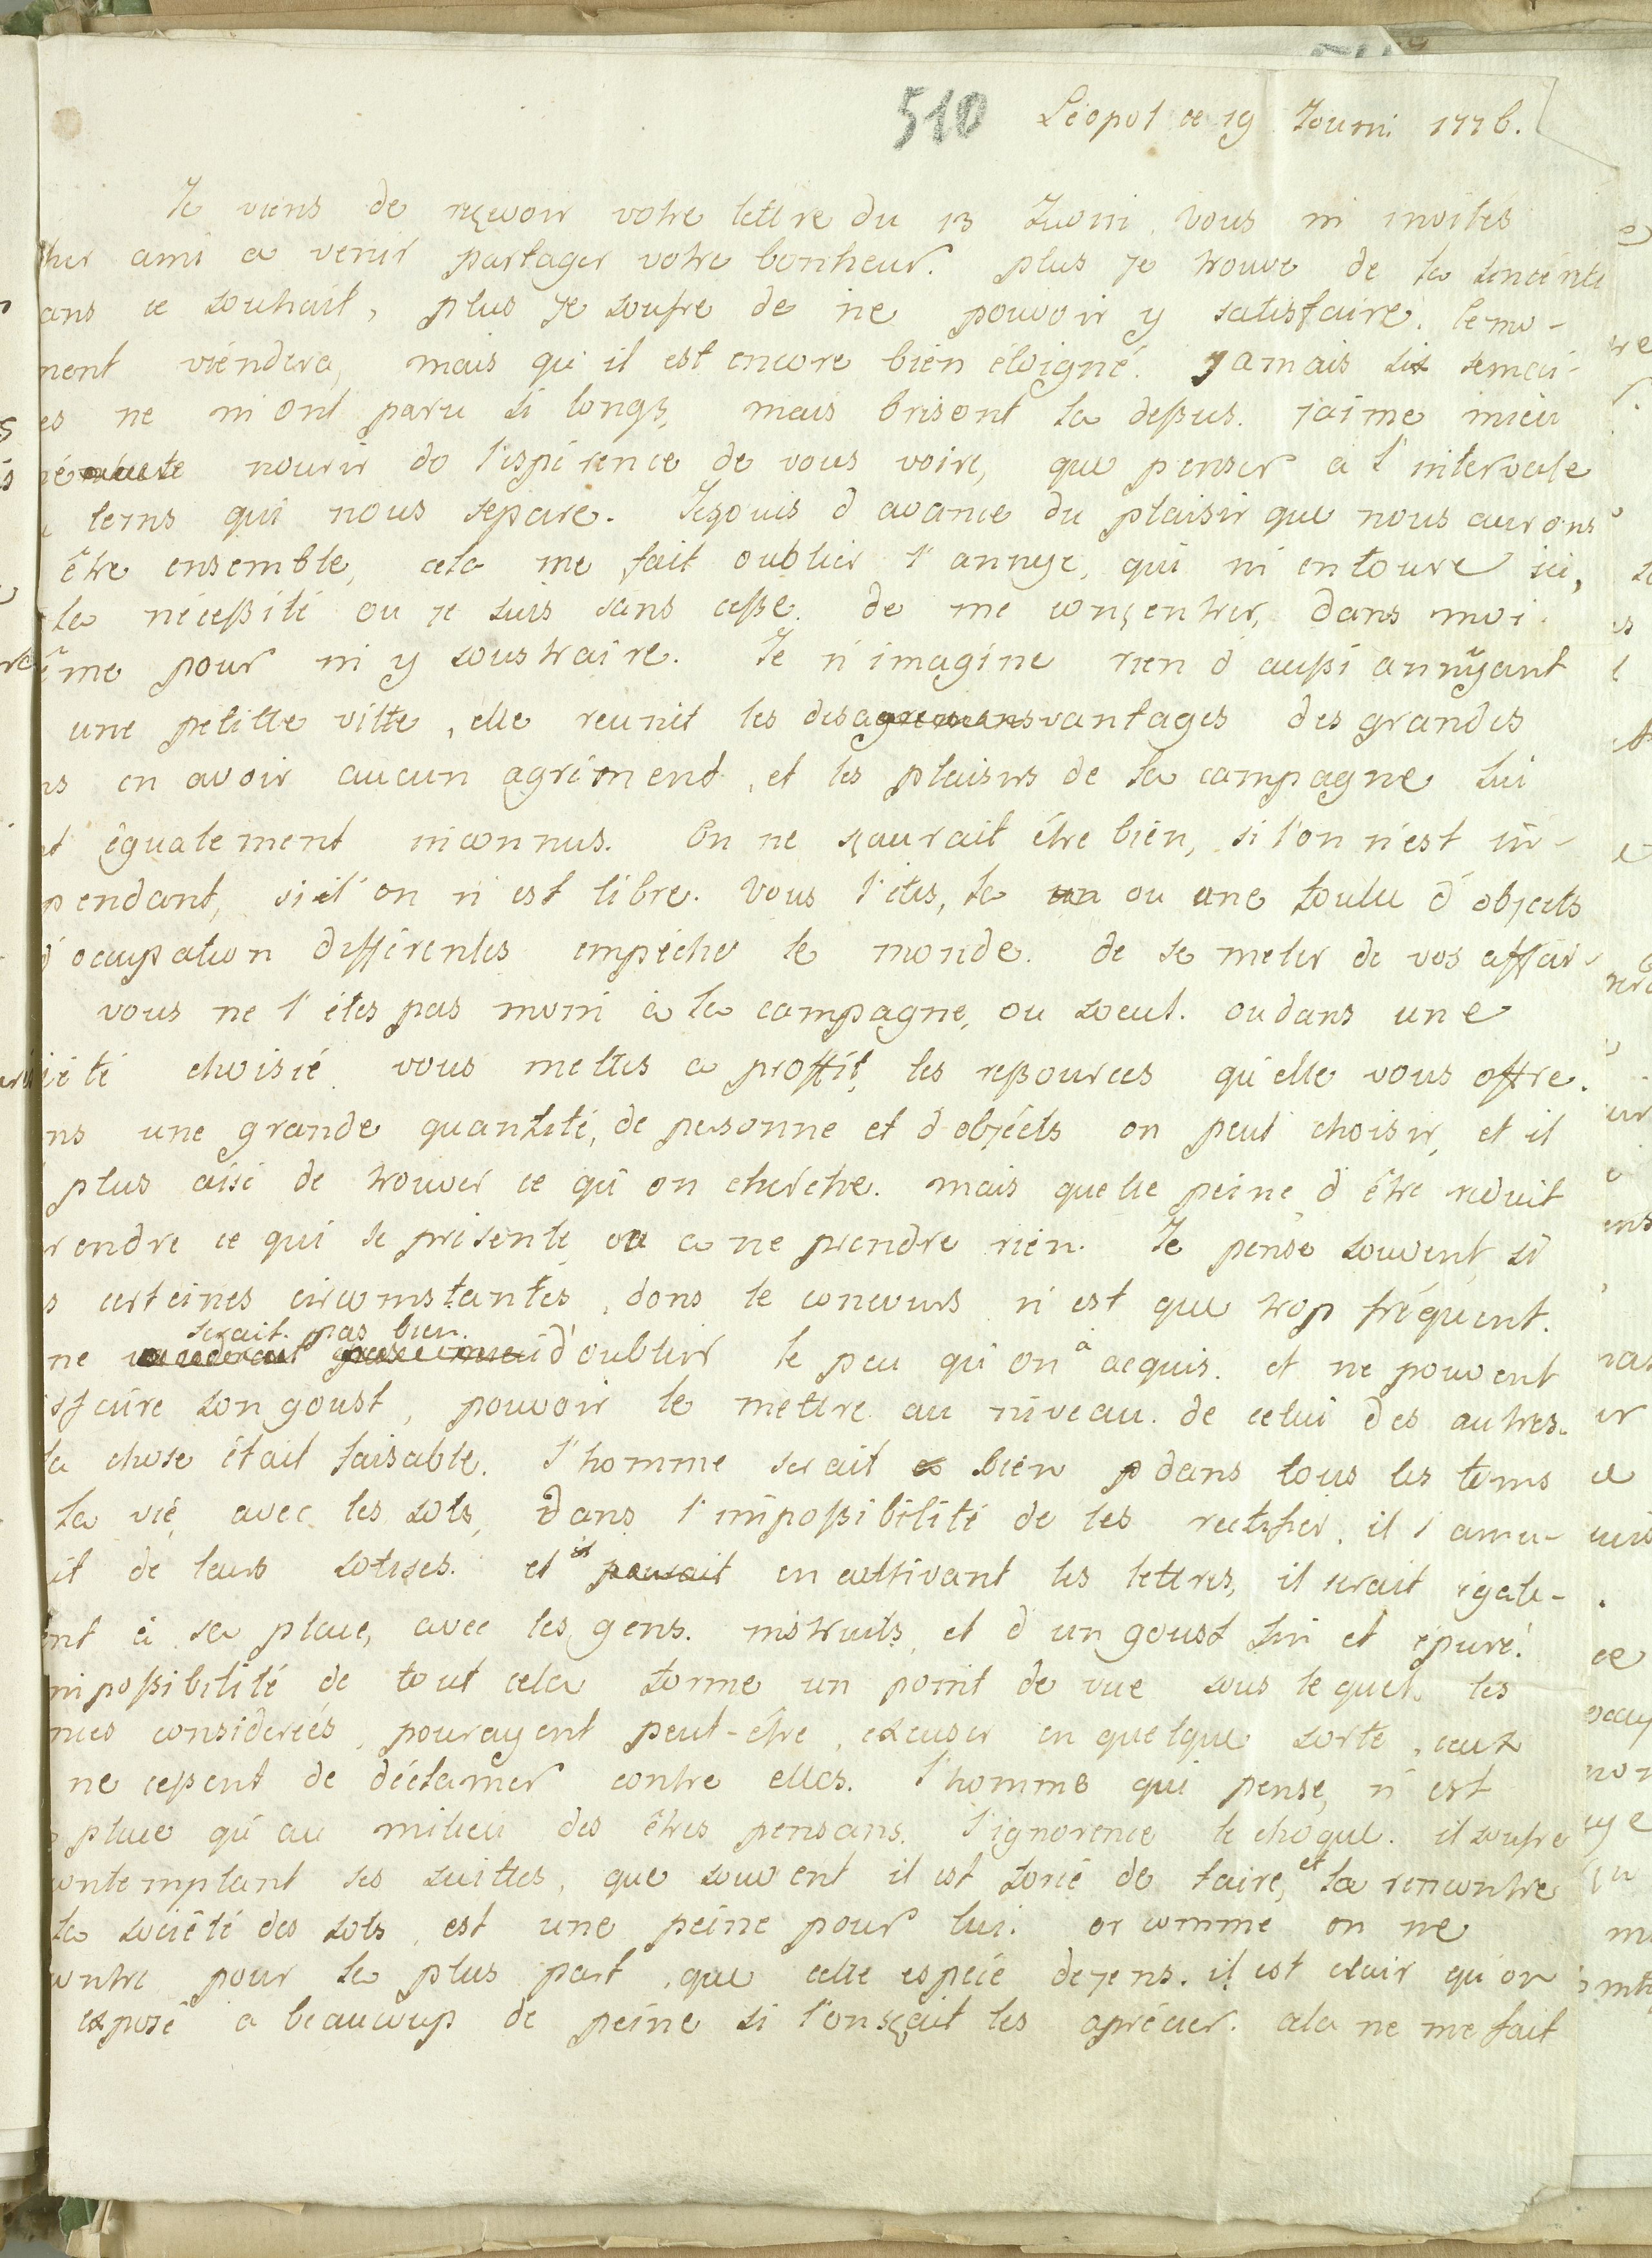 510 Léopol ce 19 Jouni 1776.
Je viens de reçevoir votre lettre du 13 Juoin. vous m invités
cher ami a venir partager votre bonheur. plus je trouve de la sincerité
ans ce souhait, plus je soufre de ne pouvoir y satisfaire. le mo-
ment viendera, mais qu il est encore bien éloigné. jamais six semai-
es ne m ont paru si longs, mais brisont la deßus. j'aime mieu
nourir de l'espérence de vous voire, que penser a l'intervale
tems qui nous separe. Jejouis d avance du plaisir que nous aurons
être ensemble, cela me fait oublier l'annye, qui m entoure ici,
la néceßité ou je suis sans ceße. de me conçentrer, dans moi
ême pour m y soustraire. Je n'imagine rien d außi annyant
une petitte ville, elle reunit les desagremensvantages des grandes
ns en avoir aucun agriment, et les plaisirs de la campagne lui
nt également inconnus. On ne sçaurait être bien, si l'on n'est in-
pendant, si l'on n'est libre. vous l'etes, la un ou une foule d'objects
d'ocupation differentes empéche le monde. de se meler de vos affair-
vous ne l'êtes pas moin à la campagne, ou seul. ou dans une
iété choisie vous mettes a proffit, les reßources qu'elle vous offre.
ns une grande quantité, de personne et d objécts on peut choisir, et il
plus aisé de trouver ce qu on cherche. mais quelle peine d être reduit
rendre ce qui se présente, ou a ne prendre rien. Je pense souvent, si
s certeines circomstantes, dons le concours n'est que trop fréquent.
serait pas bien
ne d'oublier le peu qu'on a acquis. et ne pouvent
isfaire son goust, pouvoir le mettre au niveau. de celui des autres.
la chose était faisable. l'homme serait bien dans tous les tems
la vie, avec les sots, dans l'impoßibilité de les rectifier, il s'amu-
it de leurs sotises. et pensait en cultivant les lettres, il serait égale-
nt à sa place, avec les gens. instruits, et d un goust fin et épuré.
mpoßibilité de tout cela forme un point de vue sous lequel. les
mes considerées, pourayent peut-être, excuser en quelque sorte, ceux
ne ceßent de déclamer contre elles. l'homme qui pense, n'est
place qu'au milieu des êtres pensans. l'ignorence le choque. il soufre
contemplant ses suittes, que souvent il est forcé de taire, et la rencontre
la société des sots, est une peine pour lui. or comme on ne
contre pour la plus part, que cette espéce de jens. il est clair qu'on
exposé a beaucoup de peine si l'on sçait les aprécier. cela ne me fait